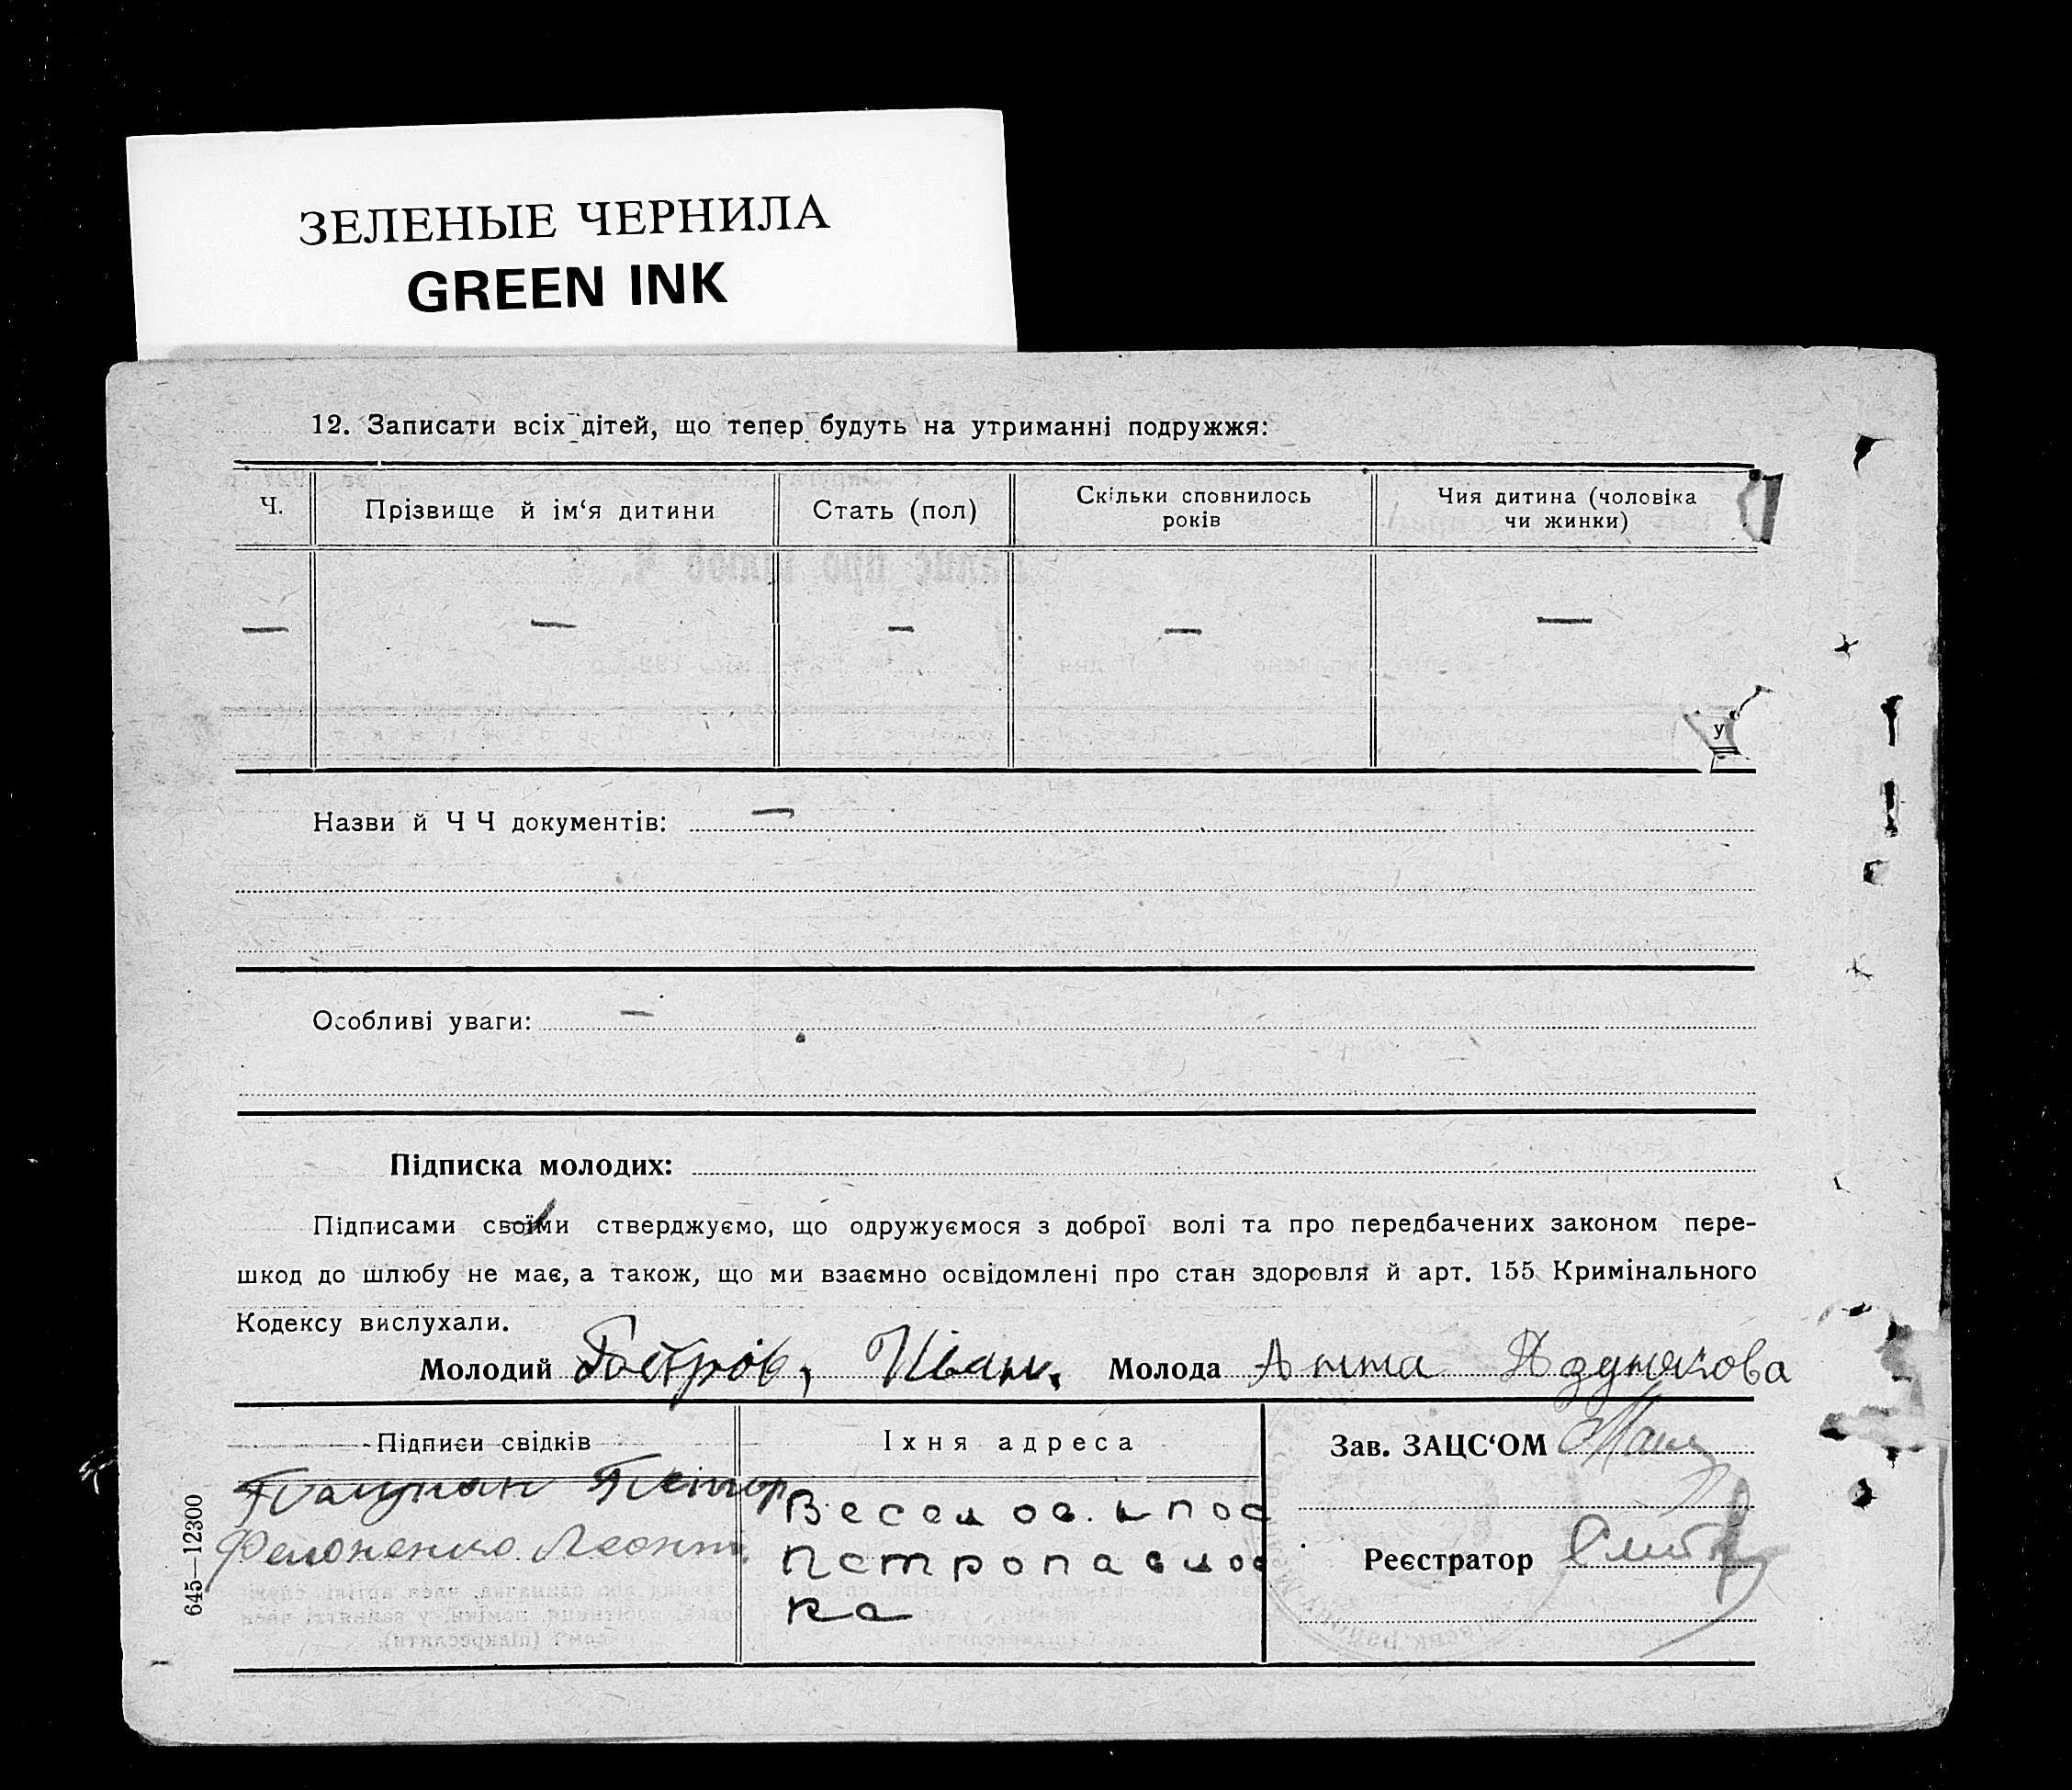 ЗЕЛЕНЫЕ ЧЕРНИЛА
GREEN INK
12. Записати всіх дітей, що тепер будуть на утриманні подружжя:
Ч. Прізвище й ім‘я дитини Стать (пол) Скільки сповнилось років Чия дитина (чоловіка чи жинки)
— — — — —
у
Назви й ЧЧ документів: —
Особливі уваги: —
Підписка молодих:
Підписами своїми стверджуємо, що одружуємося з доброї волі та про передбачених законом пере-
шкод до шлюбу не має, а також, що ми взаємно освідомлені про стан здоровля й арт. 155 Кримінального
Кодексу вислухали.
Молодий Іван. Молода Анна
Підписи свідків Їхня адреса Зав. ЗАЦС‘ОМ
Петир
Весел ов. к пос
Петропавлов
ка
Реєстратор
645—12300